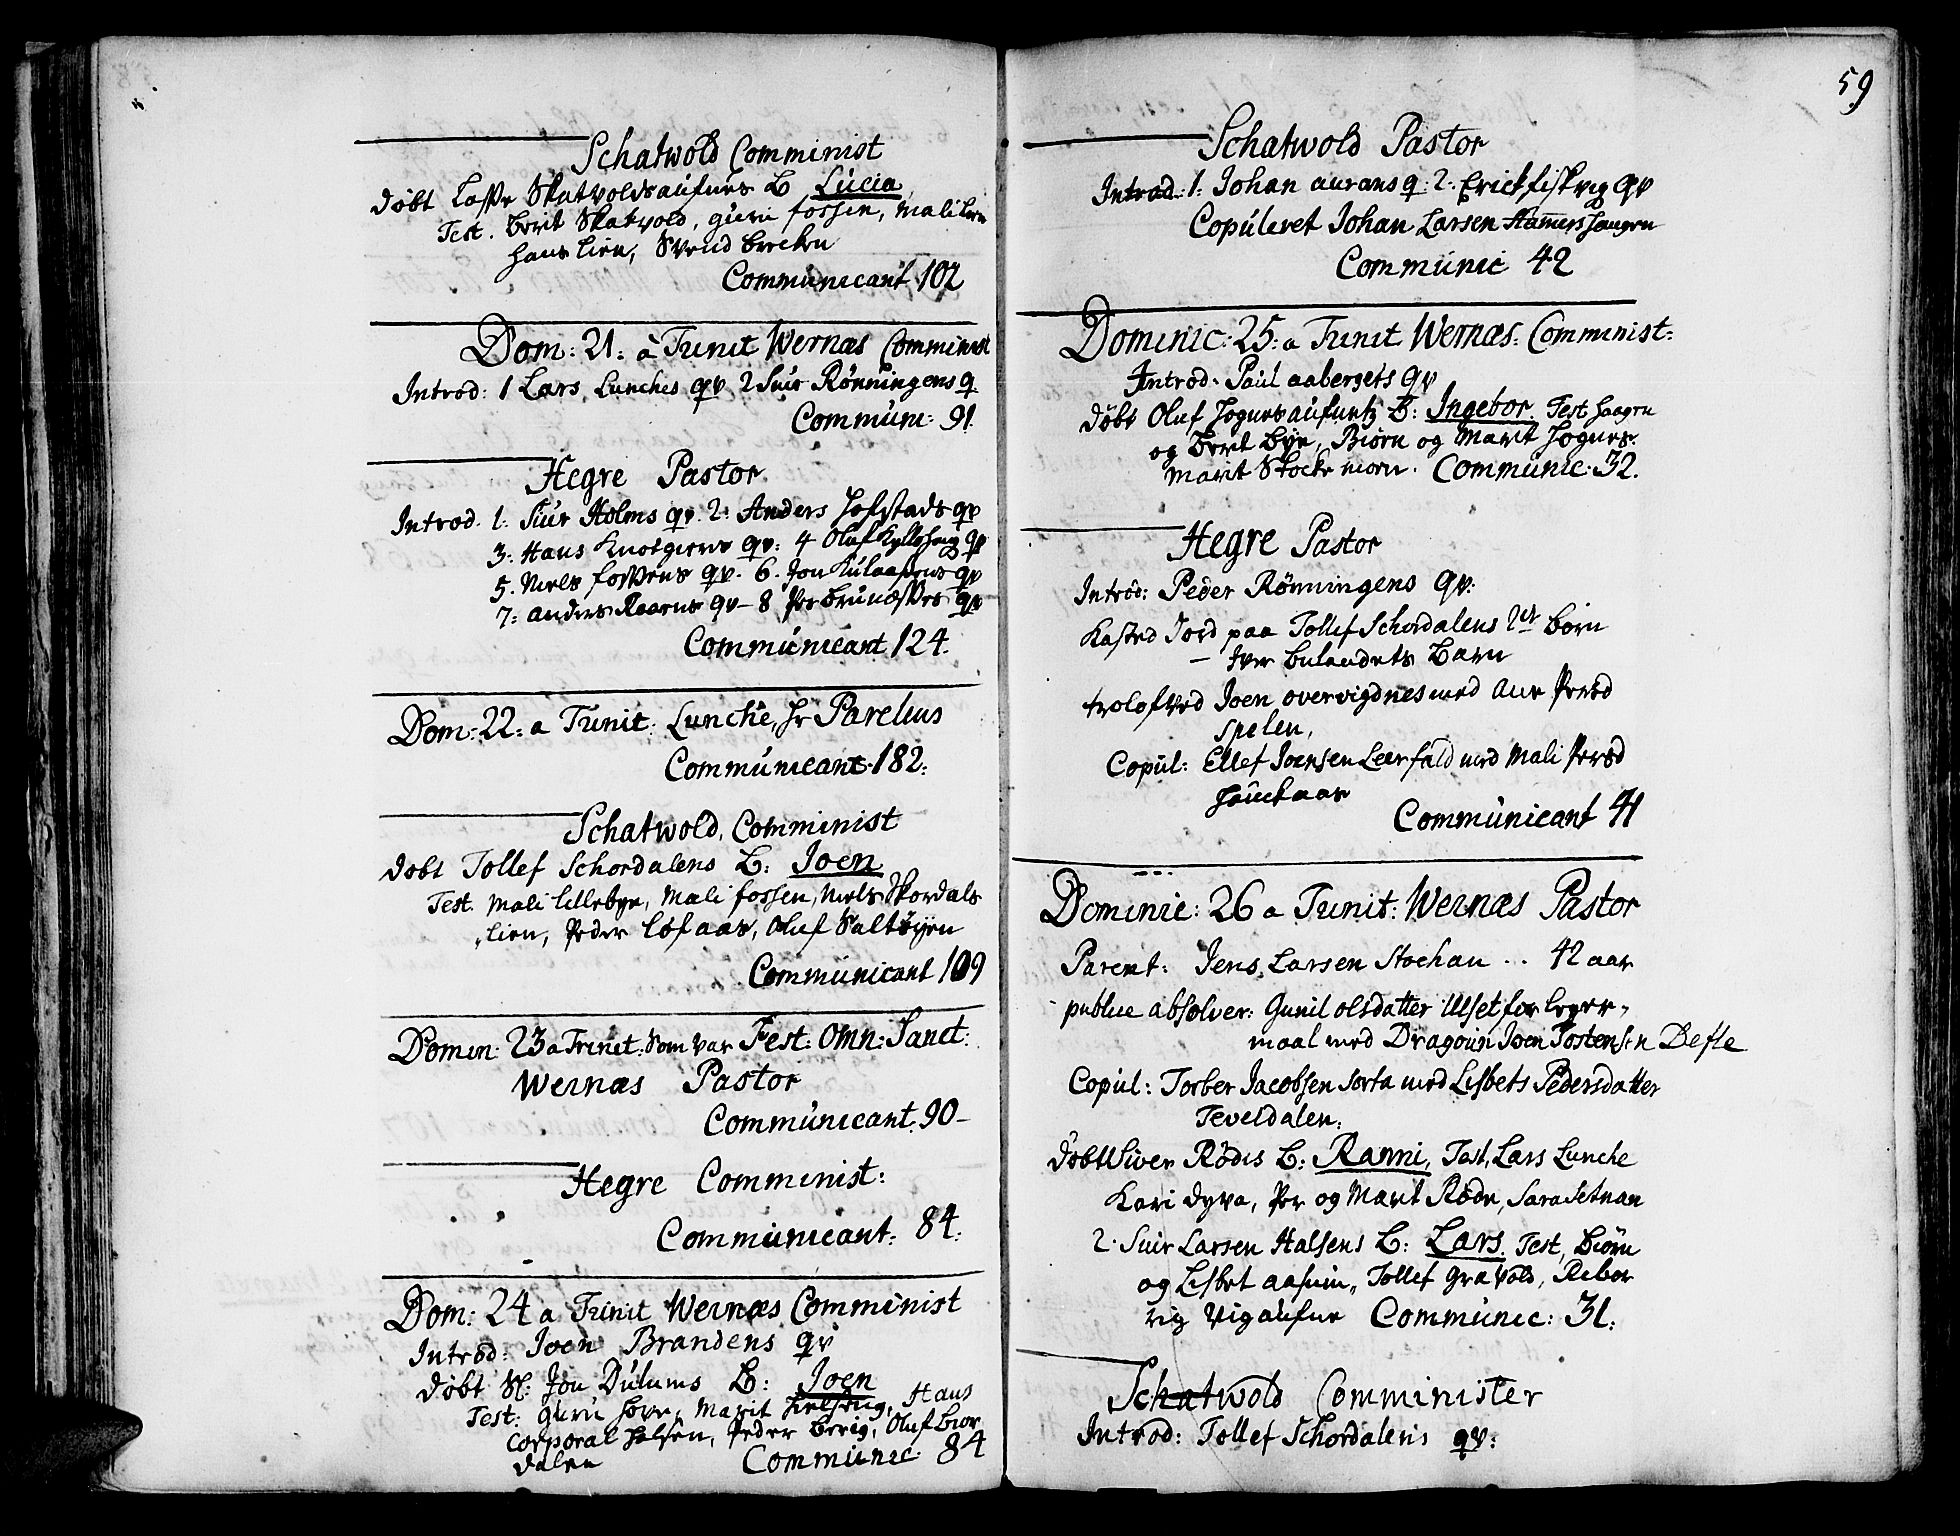 Schatwold Comminist
døbt Lasse Skatvoldsaunes B. Lucia
Test. Berit Skatvold, guru fossen, Mali
Hans lien, Svend
Communicant 102
Dom: 21: à Trinit Wernæs Comminist
Introd: 1 Lars Lunches qv 2 Siur Rönningens q.
Commun: 91.
Hegre Pastor
Introd. 1: Siur Holms qv. 2: Anders Hofstads qv
3: Hans qv: 4 Oluf qv
5. Niels fossens qv. 6. Jon qv
7: anders Raaens qv - 8 Per qv
Communicant 124.
Dom: 22: a Trinit: Lunche, Hr Parelius
Communicant 182:
Schatwold, Comminist
døbt Tollef Schordalens B: Joen
Test. Mali lillebye, Mali fossen, Niels Skordals
lien, Peder lofaas, Oluf Saltøyen
Communicant 109
Domin: 23 a Trinit: som var Fest: Omn: Sanct:
Wernæs Pastor
Communicant. 90-
Hegre Comminist:
Communicant: 84:
Dom: 24 a Trinit Wernæs Comminist
Introd: Joen Brandens qv
døbt Sl: Jon Dulums B: Joen
Test: guru hove, Marit Hans
Corporal Halsen, Peder Berig, Oluf Bior
dalen Communic 84
59
Schatwold Pastor
Introd: 1: Johan aurans q: 2: Erick fiskvig qv
Copuleret Johan Larsen Hammershaugen
Communic 42
Dominic: 25: a Trinit Wernæs: Comminist:
Introd. Paul aabergets qv
døbt Oluf B: Ingebor. Test haagen
og Berit Bye, Biørn og Marit
Marit Stockemoen. Communic: 32.
Hegre Pastor
Introd: Peder Rönningens qv:
Kasted Jord paa Tollef Schordalens 2de børn
- Iver bulandets Barn
trolofved Joen overvigdnes med Ane Persd
spelen,
Copul: Ellef Joensen Leerfald med Mali Persd
Communicant 41
Dominic: 26 a Trinit: Wernæs Pastor
Parent: Jens Larsen Stochan .. 42 aar
publice absolver: Gunil olsdatter Ulset for leyer-
maal med Dragoun Joen Tostensen Defle
Copul: Torber Jacobsen Sorta med Lisbets Pedersdatter
Teveldalen:
døbt Siver Rödes B: Ranni, Test, Lars Lunche
Kari dyva, Per og Marit Röde, Sara Setnan
2. Siur Larsen Halsens B: Lars. Test, Biørn
og Lisbet aasuin, Tollef Gravold, Rebor
rig Vigaune Communic: 31.
Schatwold Comminister
Introd: Tollef Schordalens qv: